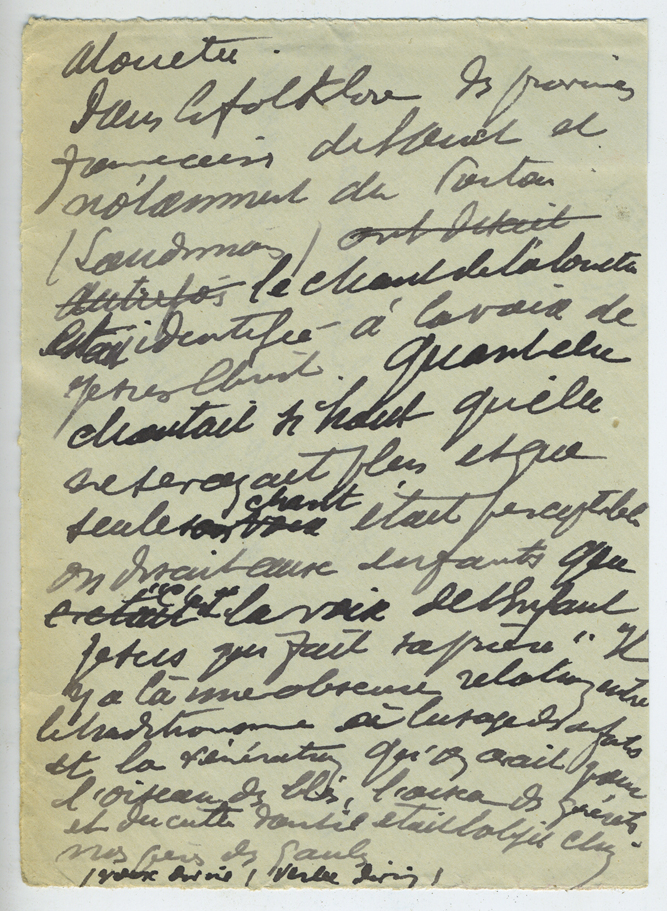 Alouette.
Dans le folklore des provinces
françaises de l'ouest et
notamment du Poitou
(                ) on disait
autrefois le chant de l'alouette
était identifié à la voix de
Jésus Christ. Quand elle
chantait si haut qu'elle
ne se voyait plus et que
seule son voix chant était perceptible
on disait aux enfants que
c'était "c'est la voix de l'Enfant
Jésus qui fait sa prière". Il
y a là une obscure relation entre
le traditionnisme à l'usage des enfants
et la vénération qu'on avait pour
l'oiseau des blés, l'oiseau des guérets
et du culte dont il était l'objet chez
nos pères de Gaule
(voix divine, verbe divin)